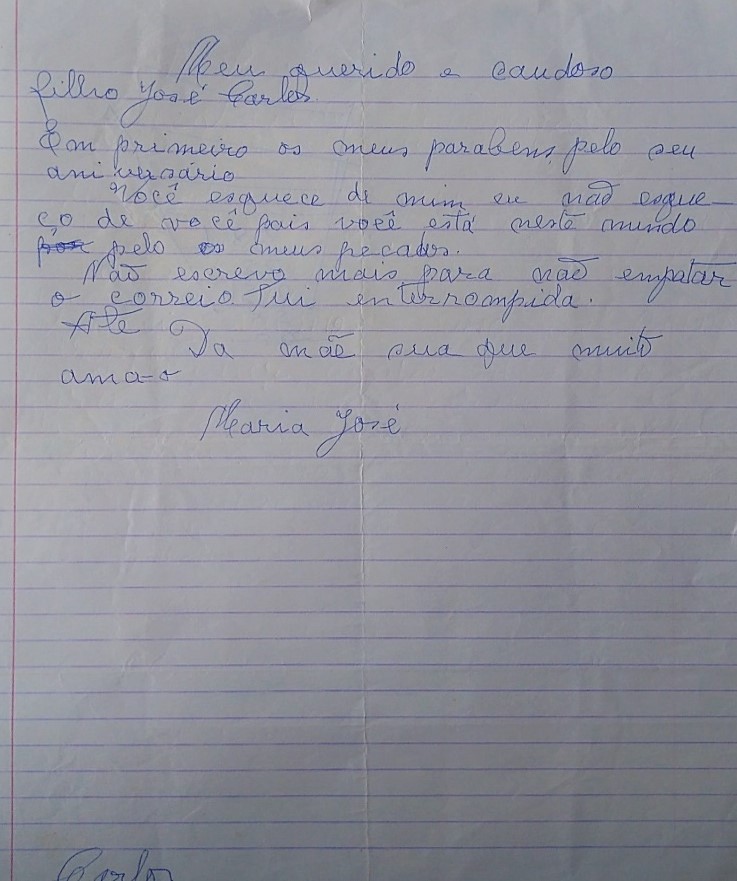 Meu querido e caudoso
filho José Carlos.
Em primeiro os meus parabens, pelo seu
aniversário
Você esquece de mim eu não esque-
ço de você pois você está neste mundo
por pelo os meus pecados.
Não escrevo mais para não empatar
o correio. Fui enterrompida.
Até
Da mãe sua que muito
ama-o
Maria José
Carlos